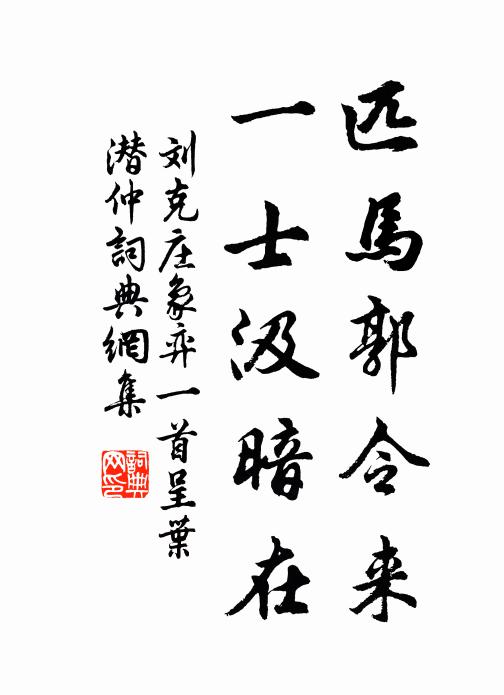 匹馬郭令来
一士汲暗在
刘克庄象弈一首呈葉
潜仲詞典網集
詞典网印